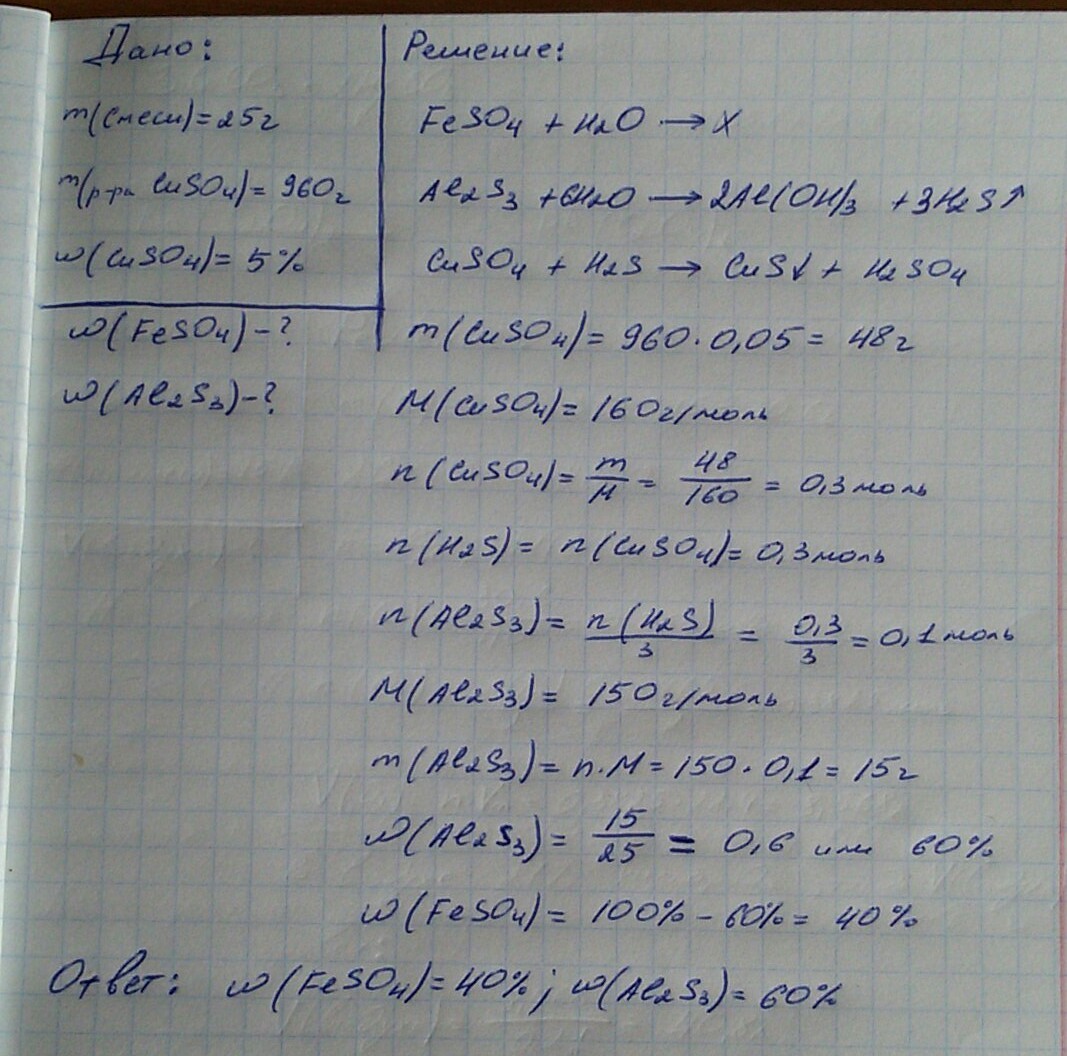 Дано:
m(смеси)=25г
m(р-ра CuSO4)= 960г
w(CuSO4)= 5%
w(FeSO4)-?
w(Al2S3)-?
Решение:
FeSO4 + H2O → X
Al2S3 +6H2O → 2Al(OH)3 +3H2S↑
CuSO4 + H2S → CuS↓ + H2SO4
m(CuSO4)= 960·0,05= 48г
M(CuSO4)= 160г/моль
n(CuSO4)= m/M = 48/160 = 0,3моль
n(H2S)= n(CuSO4)= 0,3моль
n(Al2S3)= n(H2S)/3 = 0,3/3 = 0,1моль
M(Al2S3)= 150г/моль
m(Al2S3)= n·M= 150·0,1= 15г
w(Al2S3)= 15/25 = 0,6 или 60%
w(FeSO4)= 100%-60%= 40%
Ответ: w(FeSO4)=40%; w(Al2S3)=60%